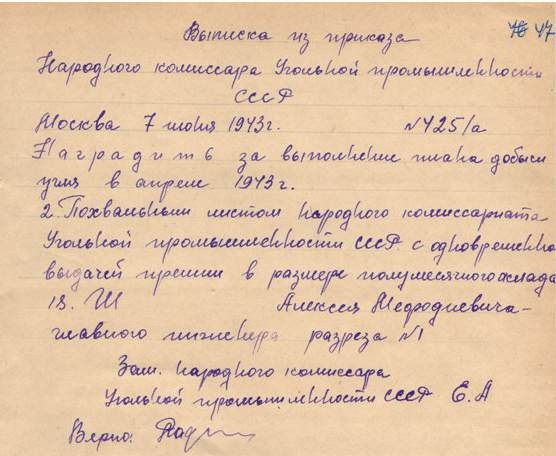 47
Выписка из приказа
Народного комиссара Угольной промышленности
СССР
Москва 7 июня 1943г. №425/а
Наградить за выполнение плана добычи
угля в апреле 1943г.
2. Похвальным листом Народного комиссариата
Угольной промышленности СССР с одновременно
выдачей премии в размере полумесячного оклада
18. Ш Алексея Мефодиевича-
главного инженера разреза №1
Зам. народного комиссара
Угольной промышленности СССР Е.А
Верно: